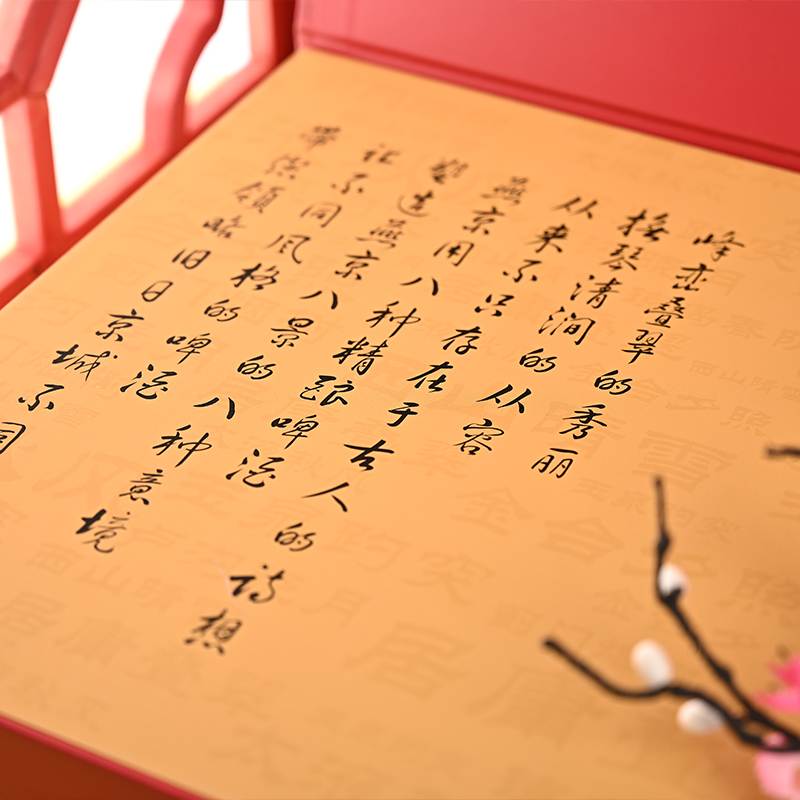 峰峦叠翠的秀丽
抚琴清涧的从容
从来不只存在于古人的诗想
燕京用八种精酿啤酒
塑造燕京八景的八种意境
让不同风格的啤酒
带您领略旧日京城不同